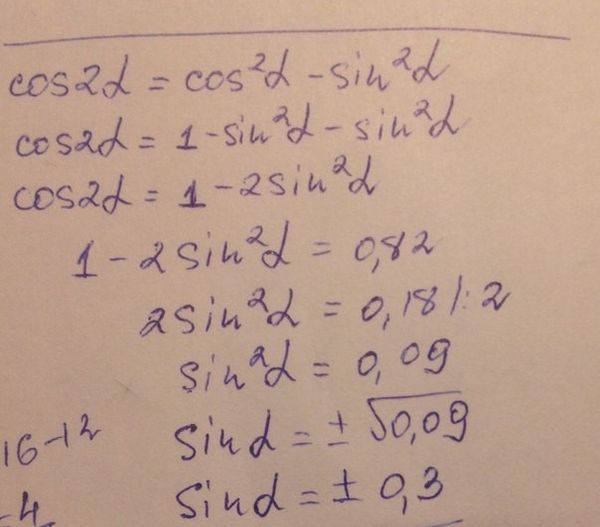 cos2α = cos²α - sin²α
cos2α = 1 - sin²α - sin²α
cos2α = 1 - 2sin²α
1 - 2sin²α = 0,82
2sin²α = 0,18 /: 2
sin²α = 0,09
sinα = ± √0,09
sinα = ± 0,3
16-12
-4